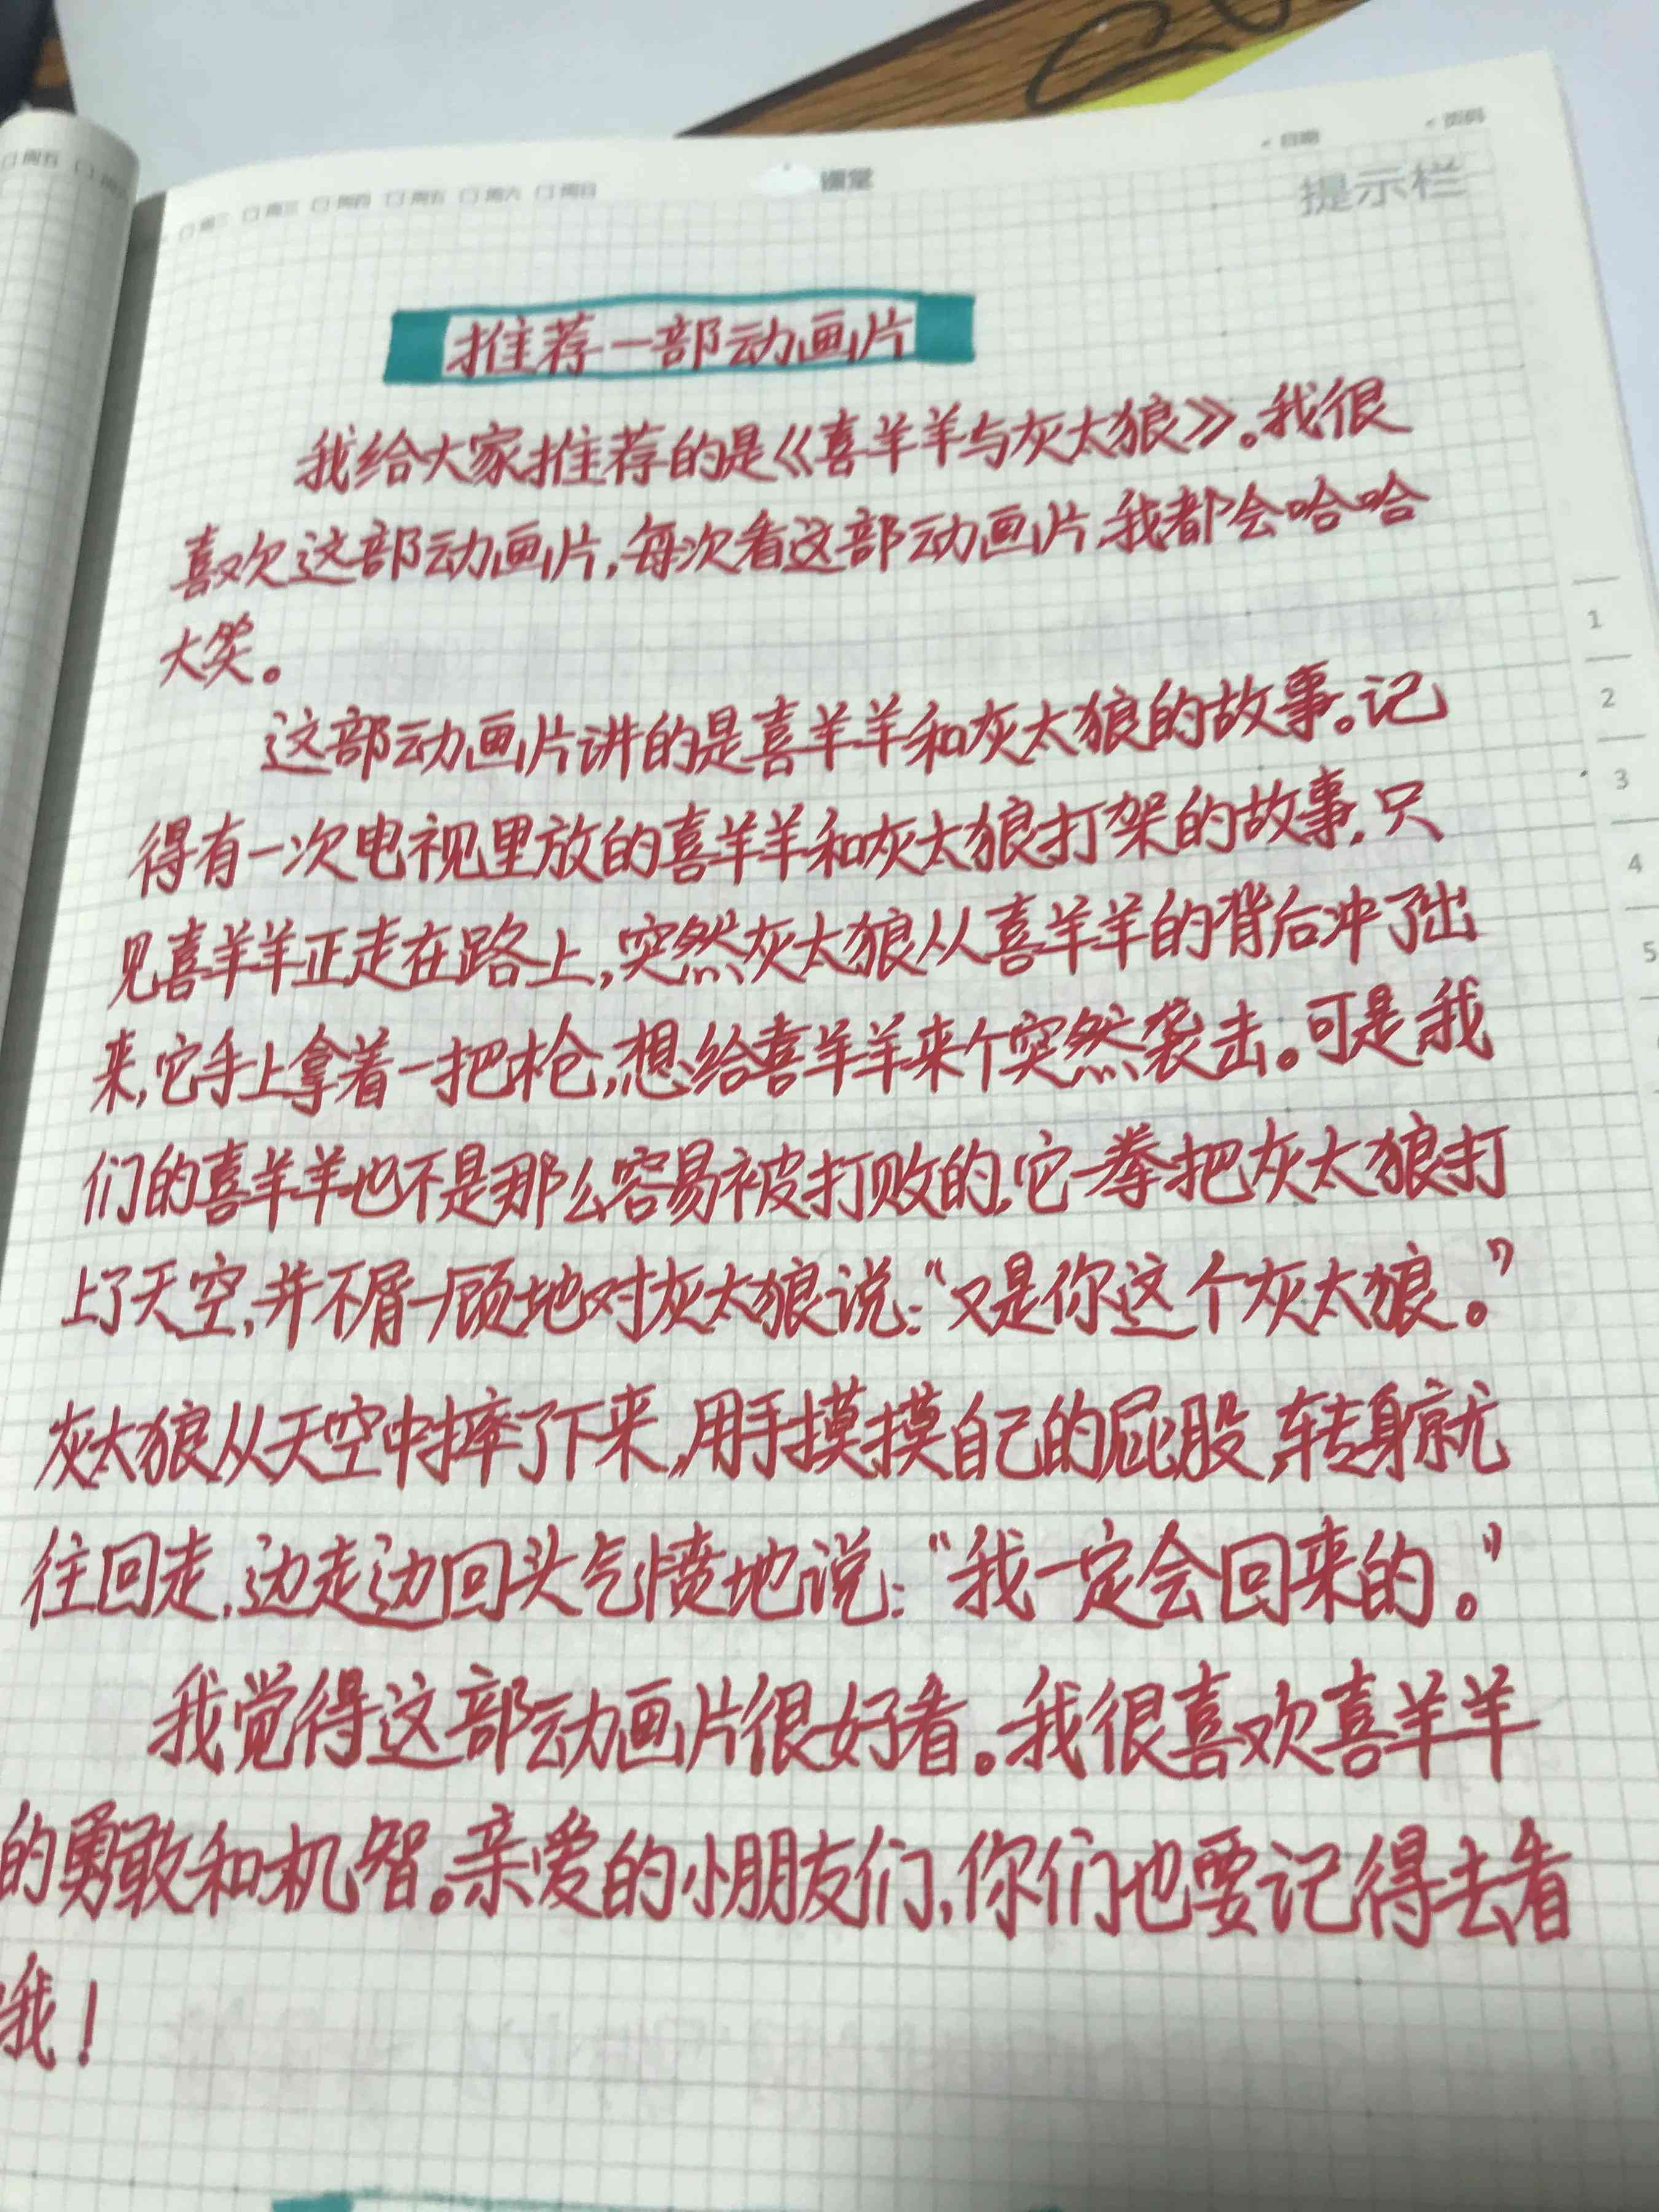 周五
周三 周四 周五 周六 周日
课堂
日期
页码
提示栏
推荐一部动画片
我给大家推荐的是《喜羊羊与灰太狼》。我很
喜欢这部动画片,每次看这部动画片,我都会哈哈
大笑。
这部动画片讲的是喜羊羊和灰太狼的故事。记
得有一次电视里放的喜羊羊和灰太狼打架的故事,只
见喜羊羊正走在路上,突然灰太狼从喜羊羊的背后冲了出
来,它手上拿着一把枪,想给喜羊羊来个突然袭击。可是我
们的喜羊羊也不是那么容易被打败的,它一拳把灰太狼打
上了天空,并不屑一顾地对灰太狼说:“又是你这个灰太狼。”
灰太狼从天空中摔了下来,用手摸摸自己的屁股,转身就
往回走,边走边回头气愤地说:“我一定会回来的。”
我觉得这部动画片很好看。我很喜欢喜羊羊
的勇敢和机智。亲爱的小朋友们,你们也要记得去看
哦!
1
2
3
4
5